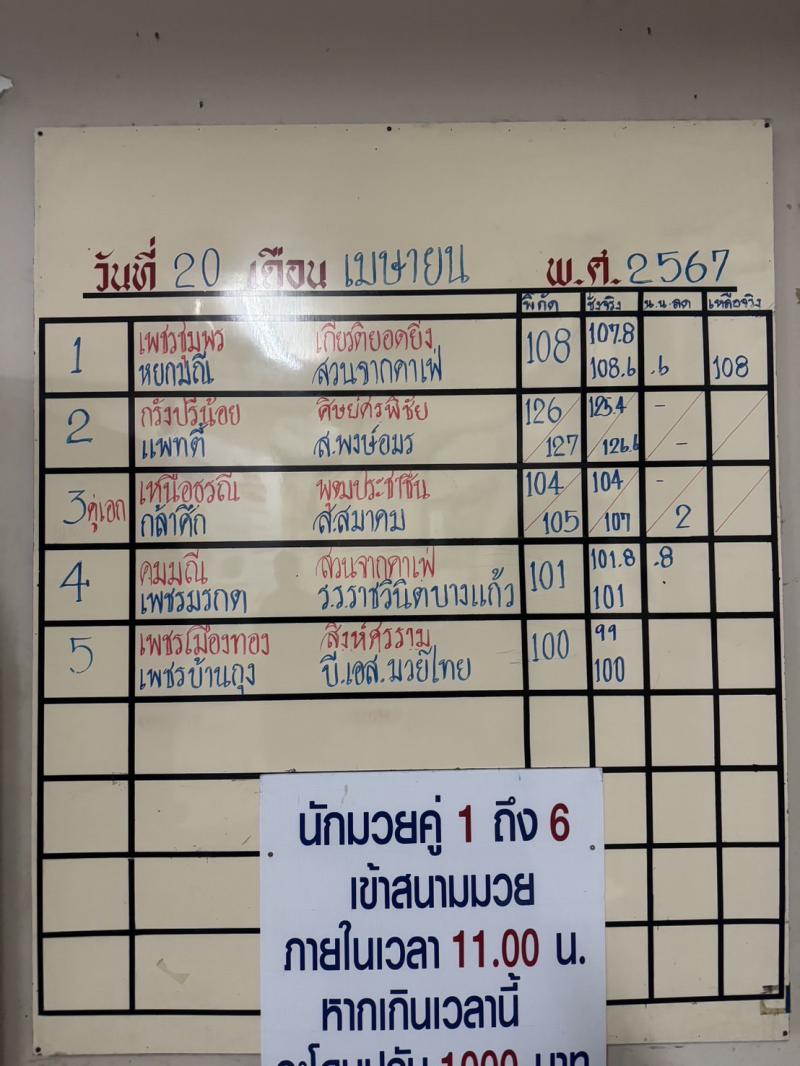 วันที่ 20 เดือน เมษายน พ.ศ. 2567
พิกัด ชั่งจริง น.น.ลด เหลือจริง
1 เพชรชุมพร เกียรติยอดยิ่ง 108 107.8
หยกมณี สวนจากคาเฟ่ 108.6 .6 108
2 กรังปรีน้อย ศิษย์ศรพิชัย 126 125.4 -
แพทตี้ ส.พงษ์อมร 127 126.6 -
3 คู่เอก เหนือธรณี พูฒประชาชื่น 104 104 -
กล้าศึก ส.สมาคม 105 107 2
4 คมมณี สวนจากคาเฟ่ 101 101.8 .8
เพชรมรกต ร.ร.ราชวินิตบางแก้ว 101
5 เพชรเมืองทอง สิงห์ศรราม 100 99
เพชรบ้านถุง บี.เอส.มวยไทย 100
นักมวยคู่ 1 ถึง 6
เข้าสนามมวย
ภายในเวลา 11.00 น.
หากเกินเวลานี้
จะโดนปรับ 1000 บาท